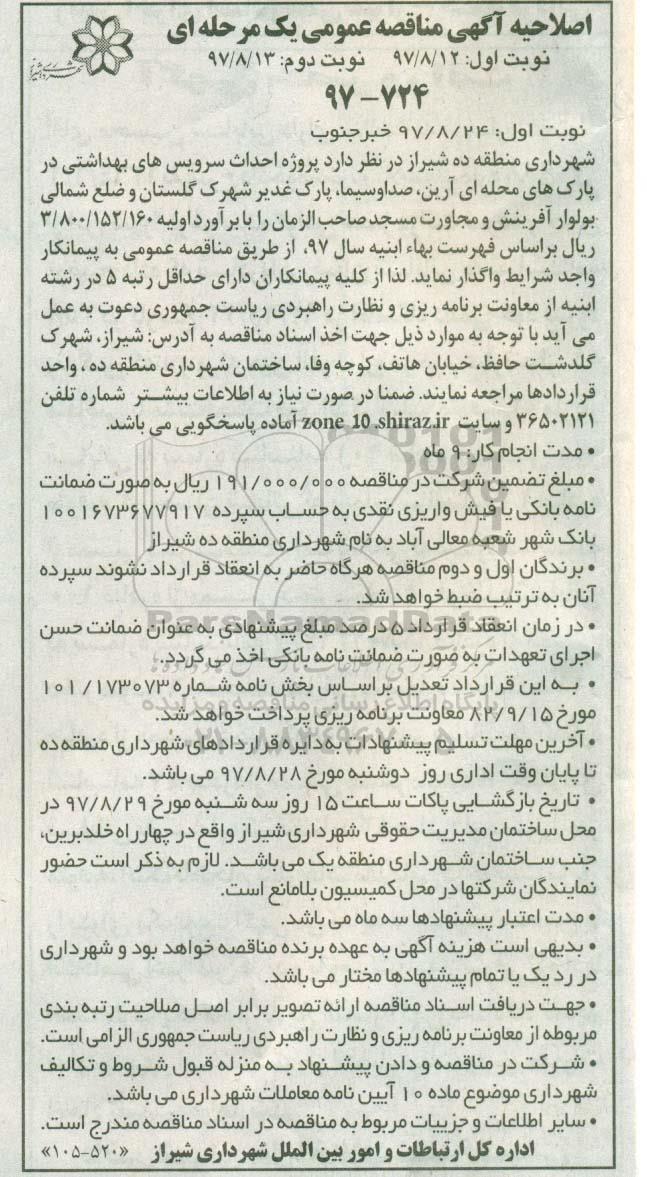 اصلاحیه آگهی مناقصه عمومی یک مرحله ای
نوبت اول: ۹۷/۸/۱۲ نوبت دوم: ۹۷/۸/۱۳
۹۷-۷۲۴
نوبت اول: ۹۷/۸/۲۴ خبرجنوب
شهرداری منطقه ده شیراز در نظر دارد پروژه احداث سرویس های بهداشتی در
پارک های محله ای آرین، صداوسیما، پارک غدیر شهرک گلستان و ضلع شمالی
بولوار آفرینش و مجاورت مسجد صاحب الزمان را با برآورد اولیه ۳/۸۰۰/۱۵۲/۱۶۰
ریال براساس فهرست بهاء ابنیه سال ۹۷، از طریق مناقصه عمومی به پیمانکار
واجد شرایط واگذار نماید. لذا از کلیه پیمانکاران دارای حداقل رتبه ۵ در رشته
ابنیه از معاونت برنامه ریزی و نظارت راهبردی ریاست جمهوری دعوت به عمل
می آید با توجه به موارد ذیل جهت اخذ اسناد مناقصه به آدرس: شیراز، شهرک
گلدشت حافظ، خیابان هاتف، کوچه وفا، ساختمان شهرداری منطقه ده، واحد
قراردادها مراجعه نمایند. ضمنا در صورت نیاز به اطلاعات بیشتر شماره تلفن
۳۶۵۰۲۱۲۱ و سایت zone 10 .shiraz.ir آماده پاسخگویی می باشد.
• مدت انجام کار: ۹ ماه
• مبلغ تضمین شرکت در مناقصه ۱۹۱/۰۰۰/۰۰۰ ریال به صورت ضمانت
نامه بانکی یا فیش واریزی نقدی به حساب سپرده ۱۰۰۱۶۷۳۶۷۷۹۱۷
بانک شهر شعبه معالی آباد به نام شهرداری منطقه ده شیراز
• برندگان اول و دوم مناقصه هرگاه حاضر به انعقاد قرارداد نشوند سپرده
آنان به ترتیب ضبط خواهد شد.
• در زمان انعقاد قرارداد ۵ درصد مبلغ پیشنهادی به عنوان ضمانت حسن
اجرای تعهدات به صورت ضمانت نامه بانکی اخذ می گردد.
• به این قرارداد تعدیل براساس بخش نامه شماره ۱۰۱/۱۷۳۰۷۳
مورخ ۸۲/۹/۱۵ معاونت برنامه ریزی پرداخت خواهد شد.
• آخرین مهلت تسلیم پیشنهادات به دایره قراردادهای شهرداری منطقه ده
تا پایان وقت اداری روز دوشنبه مورخ ۹۷/۸/۲۸ می باشد.
• تاریخ بازگشایی پاکات ساعت ۱۵ روز سه شنبه مورخ ۹۷/۸/۲۹ در
محل ساختمان مدیریت حقوقی شهرداری شیراز واقع در چهارراه خلدبرین،
جنب ساختمان شهرداری منطقه یک می باشد. لازم به ذکر است حضور
نمایندگان شرکتها در محل کمیسیون بلامانع است.
• مدت اعتبار پیشنهادها سه ماه می باشد.
• بدیهی است هزینه آگهی به عهده برنده مناقصه خواهد بود و شهرداری
در رد یک یا تمام پیشنهادها مختار می باشد.
• جهت دریافت اسناد مناقصه ارائه تصویر برابر اصل صلاحیت رتبه بندی
مربوطه از معاونت برنامه ریزی و نظارت راهبردی ریاست جمهوری الزامی است.
• شرکت در مناقصه و دادن پیشنهاد به منزله قبول شروط و تکالیف
شهرداری موضوع ماده ۱۰ آیین نامه معاملات شهرداری می باشد.
• سایر اطلاعات و جزییات مربوط به مناقصه در اسناد مناقصه مندرج است.
اداره کل ارتباطات و امور بین الملل شهرداری شیراز «۵۲۰-۱۰۵»